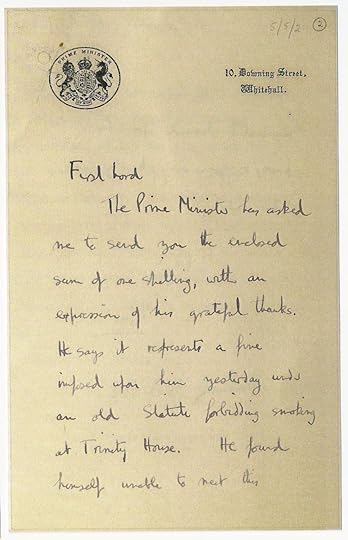 5/5/2
2
PRIME MINISTER
10, Downing Street,
Whitehall.
First Lord
The Prime Minister has asked
me to send you the enclosed
sum of one shilling, with an
expression of his grateful thanks.
He says it represents a fine
imposed upon him yesterday under
an old Statute forbidding smoking
at Trinity House. He found
himself unable to meet this